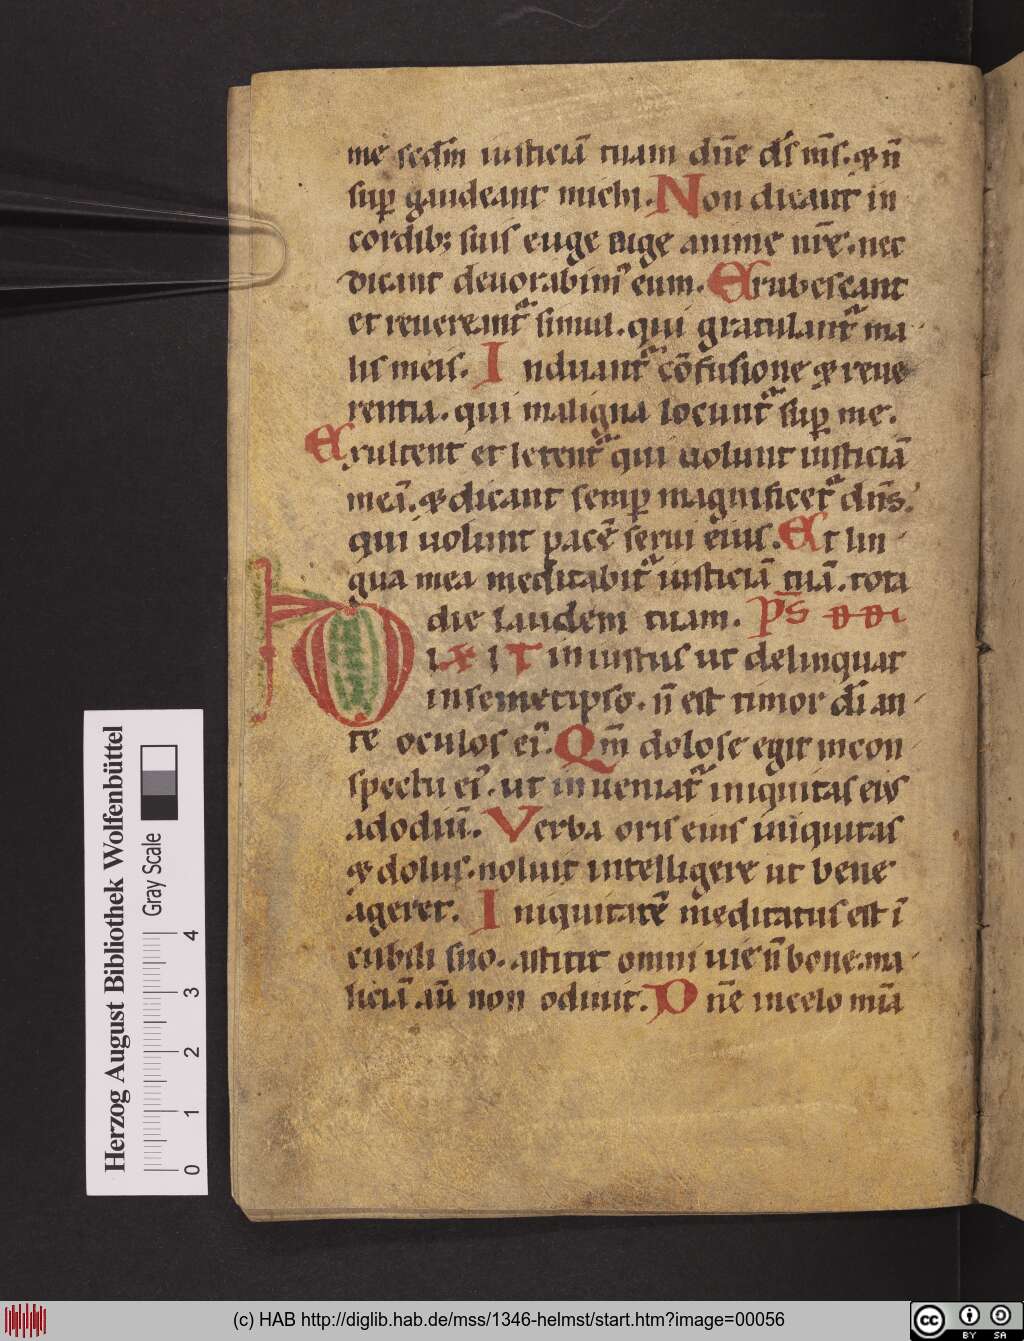 me sed̄m iusticiā tuam dn̄e ds̄ ms̄. & n̄
suꝑ gaudeant michi. Non dicant in
cordib; suis euge euge anime nr̄e. nec
dicant deuorabim᷒ eum. Erubescant
et reuereant᷑ simul. qui gratulant᷑ ma
lis meis. Induant᷑ cōfusione & reue
rentia. qui maligna locunt᷑ suꝑ me.
Exultent et letent᷑ qui uolunt iusticiā
meā. & dicant semꝑ magnificet᷑ dn̄s.
qui uolunt pacē serui eius. Et lin
gua mea meditabit᷑ iusticiā tuā. tota
die laudem tuam. ps̄ DD
Dixit iniustus ut delinquat
insemetipso. n̄ est timor dī an
te oculos ei᷒. Qm̄ dolose egit incon
spectu ei᷒. ut inueniat᷑ iniquitas eius
adodiū. Verba oris eius iniquitas
& dolus. noluit intelligere ut bene
ageret. Iniquitatē meditatus est ī
cubili suo. astitit omni uie n̄ bone. ma
liciā. aū non odiuit. Dn̄e incelo mīa
Herzog August Bibliothek Wolfenbüttel
Gray Scale
0 1 2 3 4
(c) HAB http://diglib.hab.de/mss/1346-helmst/start.htm?image=00056
cc BY SA